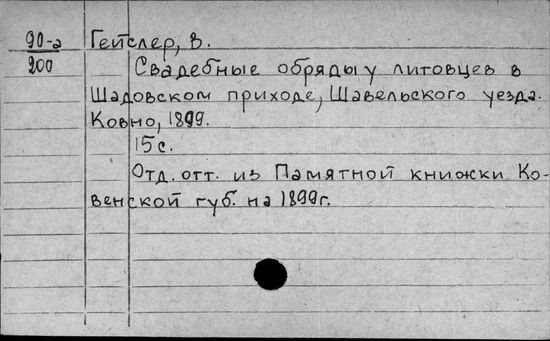 90-2 Гейслер, В.
200 Свадебные обряды у литовцев в
Шадовском приходе, Шавельского уезда.
Ковно, 1899.
15 с.
Отд. отт. из Памятной книжки Ко-
венской губ. на 1899 г.